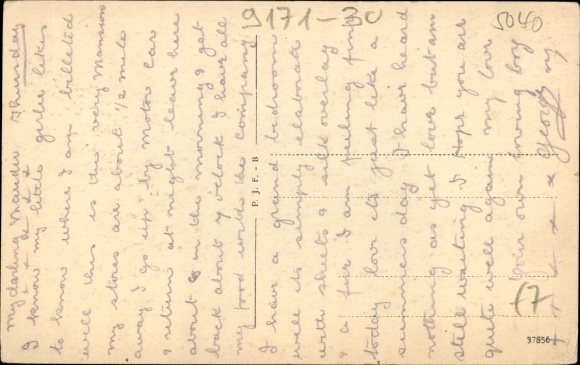 9171-30
5040
Thursday
My darling Maudie
x x x x x
I know my little girlie likes
to know where I am billeted
well this is the very Mansion
my stores are about 1/2 mile
away I go up by Motor Car
& return at night leave here
about 8 in the morning & get
back about 7 o'clock I have all
my food with the Company
I have a grand bedroom
well its simply elaborate
with sheets & silk overlay
I am feeling fine
today love its just like a
summers day I have heard
nothing as yet love but am
still waiting I Hope you are
quite well again my love
Your own loving boy
Georgy
x x x x x
P. J. F. - B
17
37856